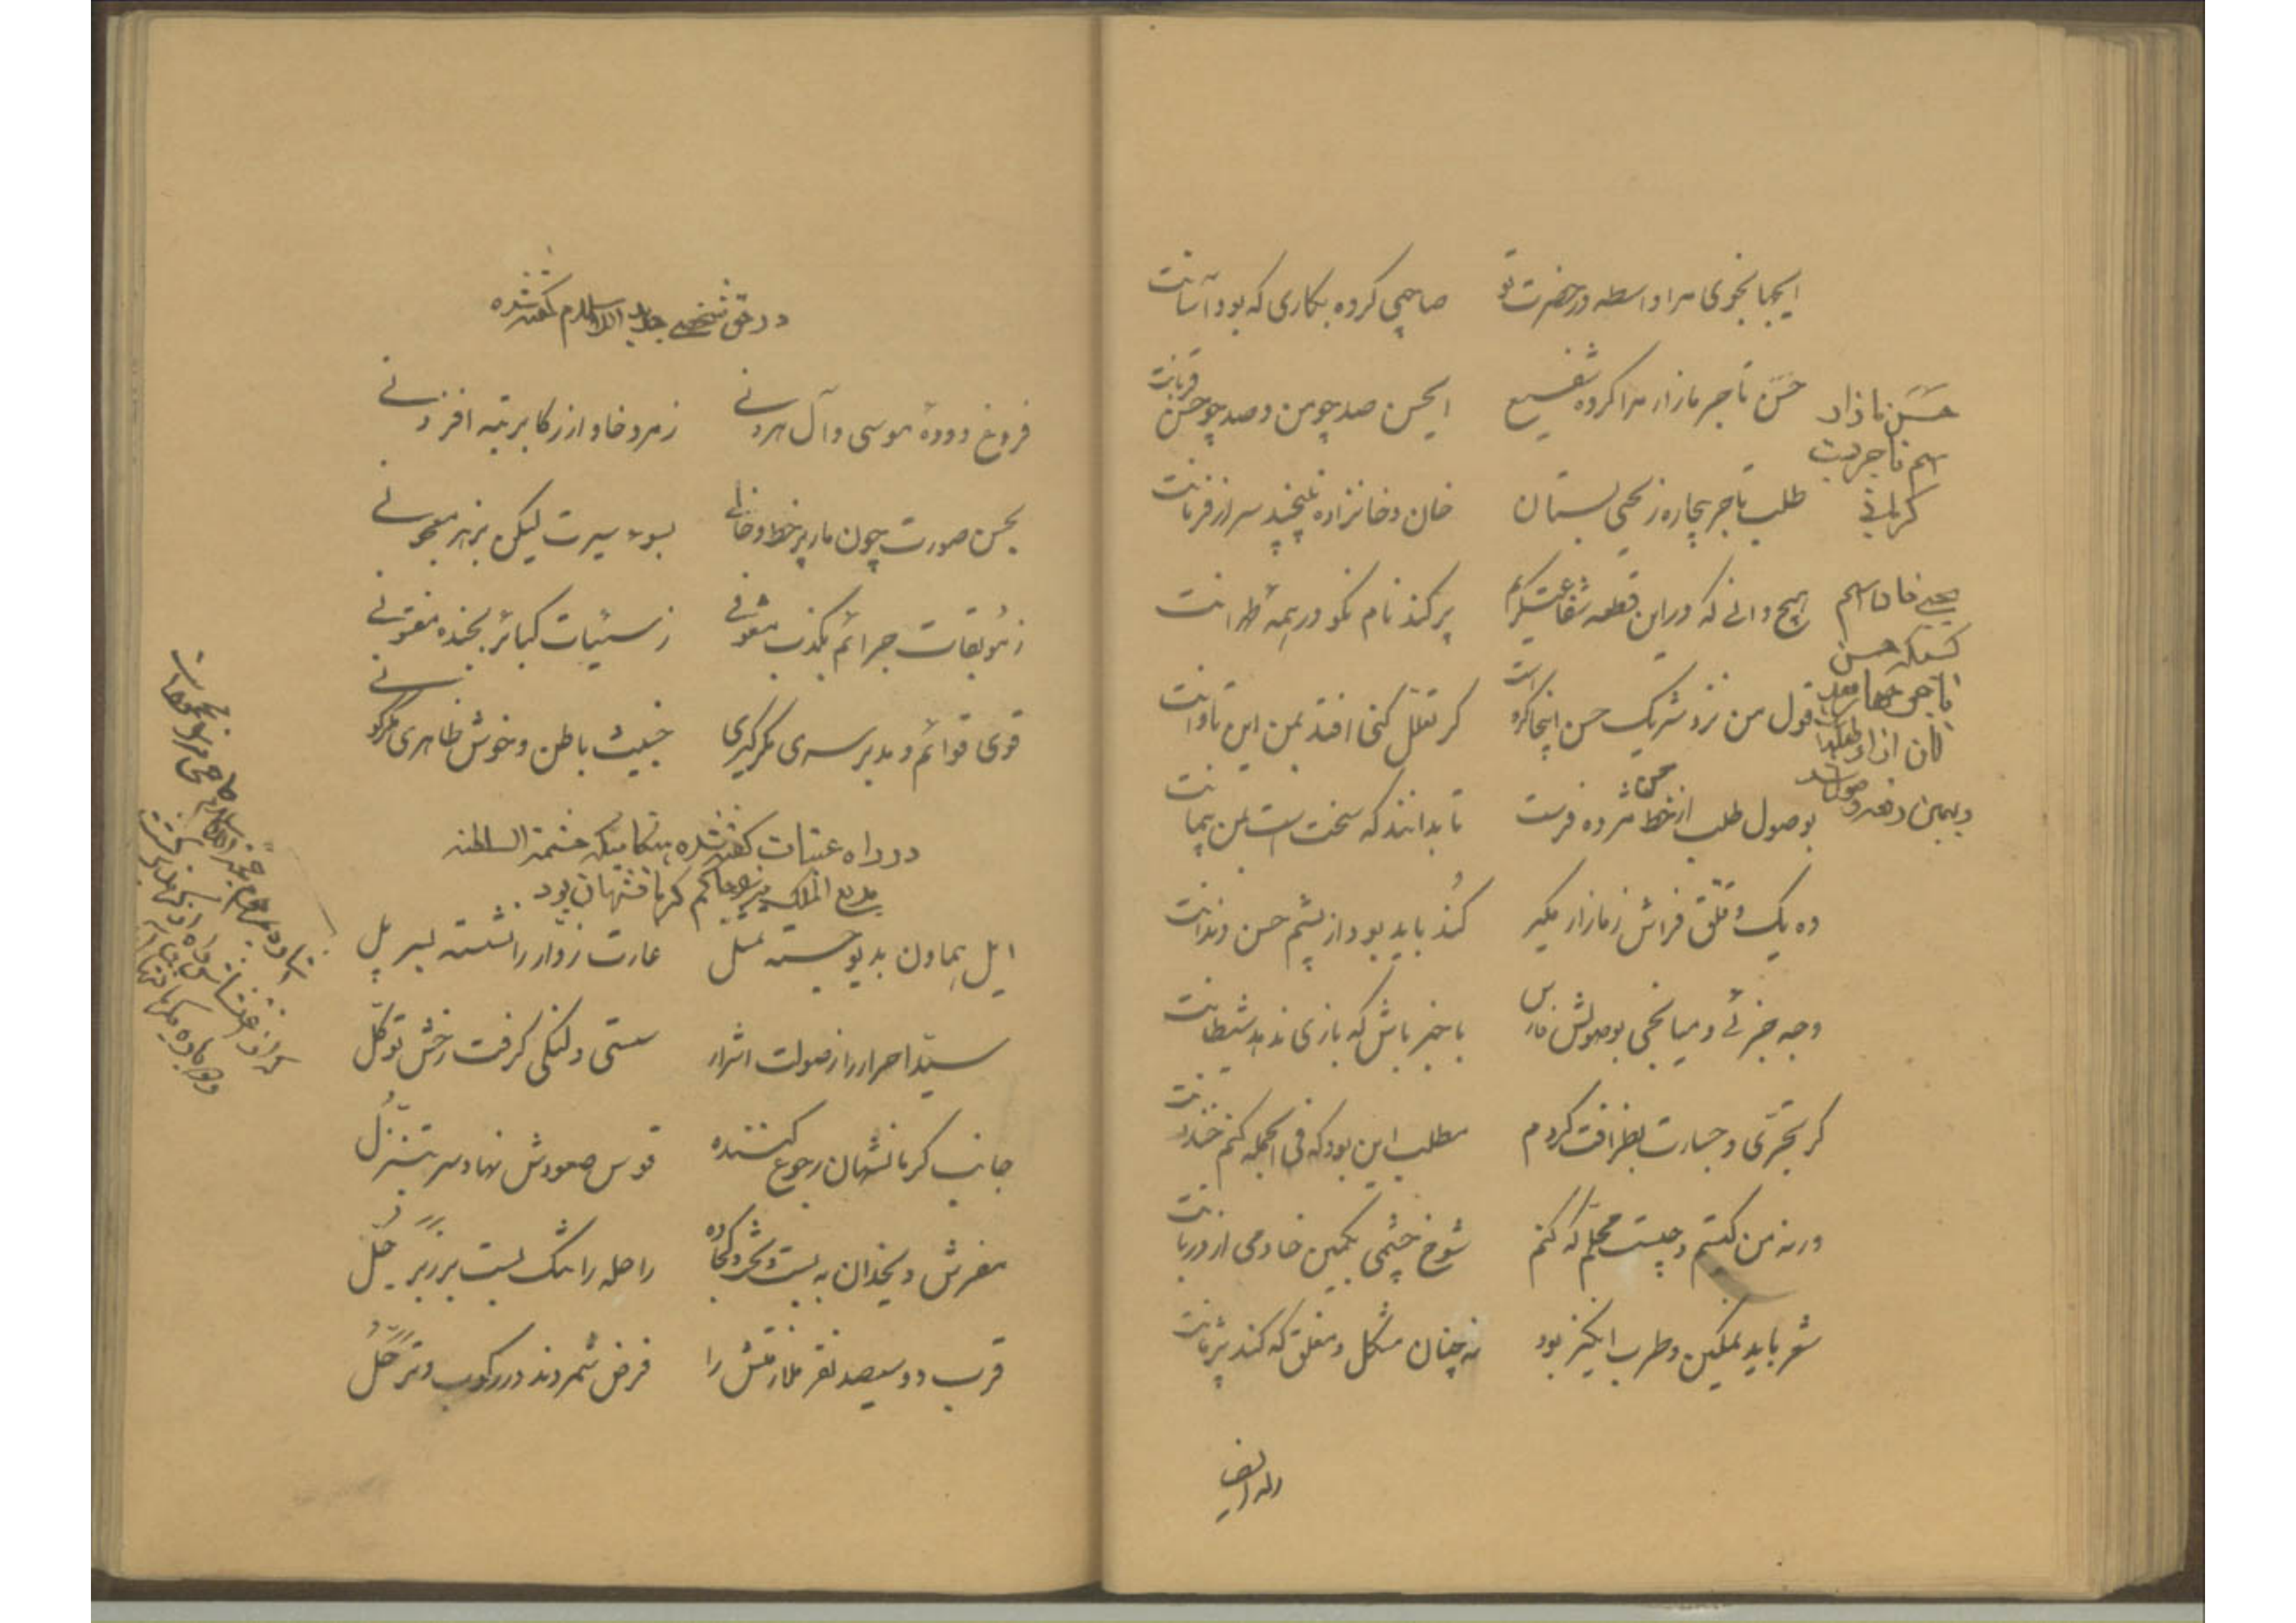 ایجیا بخوی مرا واسطه در حضرت تو
صاحبی کرده بکاری که بود آسانت
حسن تاجر مازار مرا کرده شفیع
ایحسن صد چو من و صد چو حسن قربانت
طلب تاجر بیچاره ز یحیی بستان
خان و خانزاده نپیچید سر از فرمانت
هیچ دانی که در این قطعه شفاعت گریم
پر کند نام نکو در همه
قول من نزد شریک حسن اینجا گرو است
گر تعلل کنی افتد بمن این تاوانت
بوصول طلب از خط حسن مژده فرست
تا بدانند که سخت است بمن پیمانت
ده یک و قلق فراش ز مازار مگیر
کند باید بود از پشم حسن دندانت
وجه جزئی و میانجی بوصولش فارس
باخبر باش که بازی ندهد شیطانت
گر تجری و جسارت بظرافت کردم
مطلب این بود که فی الجمله کنم خندانت
ورنه من کیستم و چیست محلم که کنم
شوخ چشمی بکمین خادمی از دربانت
شعر باید نمکین و طرب انگیز بود
نه چنان مشکل و مغلق که کند پژمانت
حسن مازار
اسم تاجریست
کرمانی
یحیی خان اسم
کسیکه حسن
تاجر
از او طلبکار
و بهمین دفعه وصول شد
وله ایضا
در حق شخصی جدید الاسلام گفته شده
فروغ دودهٔ موسی و آل هرونی
زمرد خاور از رکا برتبه افزونی
بحسن صورت چون مار پر خط و خالی
بسوء سیرت لیکن بزهر معجونی
ز موبقات جرائم بکذب مشعوفی
ز سیئات کبائر بخنده مفتونی
قوی قوائم و مدبر سری مگر کبری
خبیث باطن و خوش ظاهری مگر کونی
در راه عتبات گفته شده هنگامیکه حشمة السلطنه
بدیع الملک میرزا حاکم کرمانشهان بود
ایل هماون بدیو جسته تمثل
غارت زوار را نشسته بسر پل
سید احرار را ز صولت اشرار
سستی و لنگی گرفت رخش توکل
جانب کرمانشهان رجوع کننده
قوس صعودش نهاد سر بتنزل
مفرش و یخدان به بست و بر کجاوه
راحله را تنگ بست بر زبر جل
قرب دو سیصد نفر ملازمتش را
فرض شمردند در رکوب و ترحل